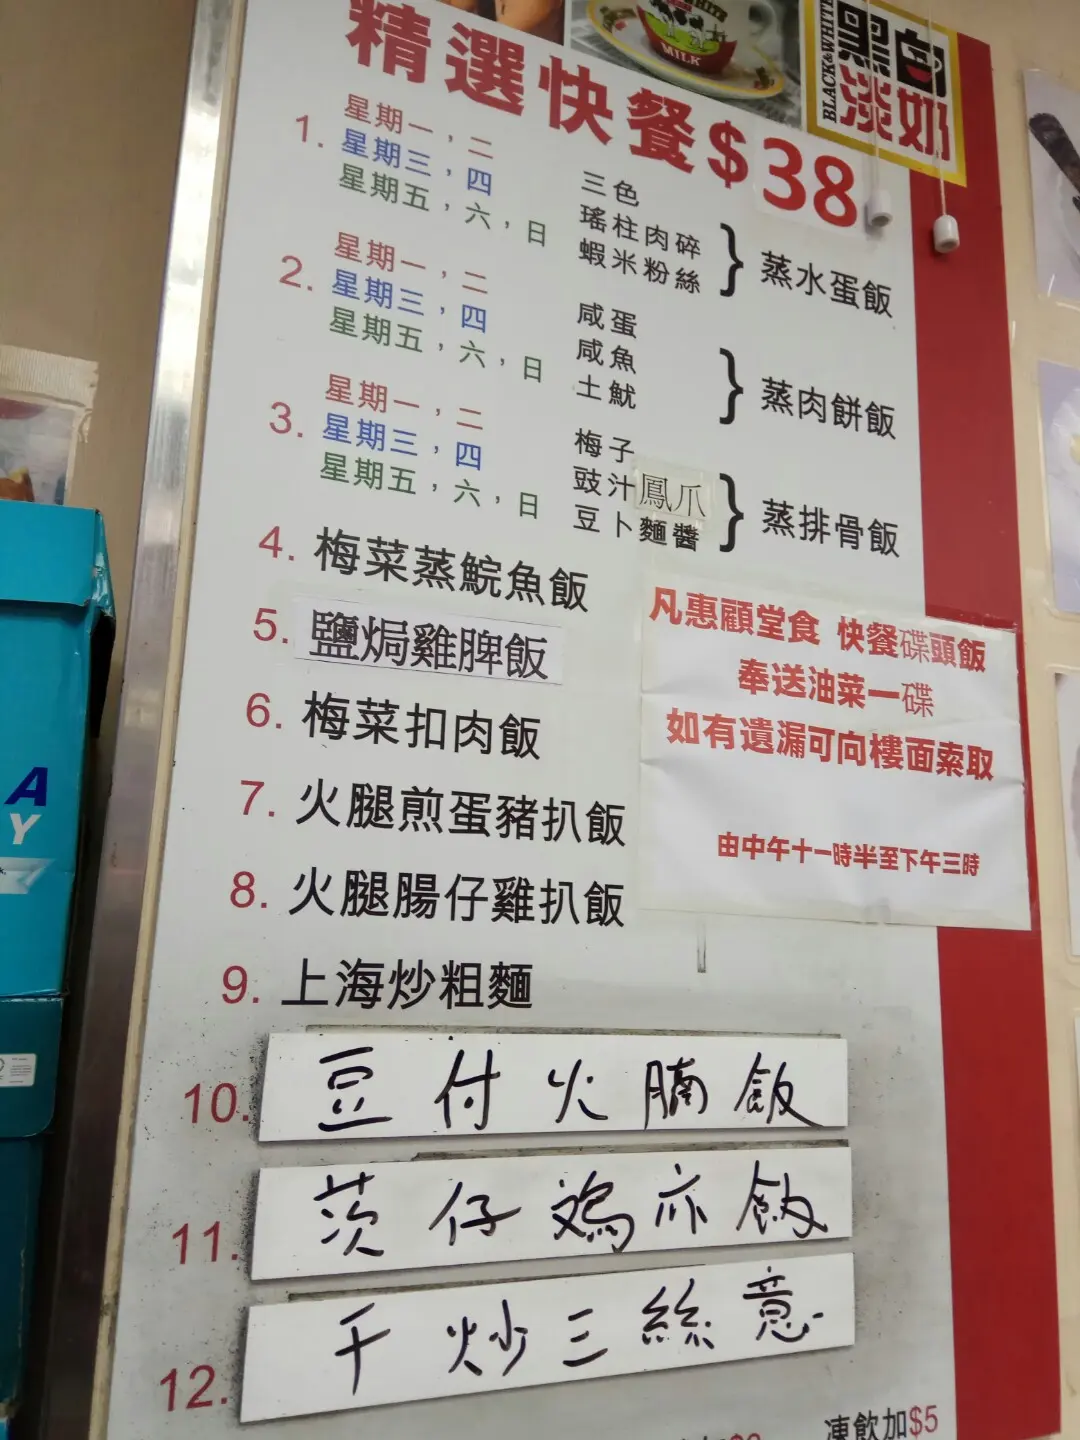 WHITE
MILK
BLACK&WHITE
黑白
淡奶
精選快餐$38
1. 星期一，二 三色
星期三，四 瑤柱肉碎
星期五，六，日 蝦米粉絲
} 蒸水蛋飯
2. 星期一，二 咸蛋
星期三，四 咸魚
星期五，六，日 土魷
} 蒸肉餅飯
3. 星期一，二 梅子
星期三，四 豉汁鳳爪
星期五，六，日 豆卜麵醬
} 蒸排骨飯
4. 梅菜蒸鯇魚飯
5. 鹽焗雞脾飯
6. 梅菜扣肉飯
7. 火腿煎蛋豬扒飯
8. 火腿腸仔雞扒飯
9. 上海炒粗麵
10. 豆付火腩飯
11. 茨仔鸡亦飯
12. 干炒三絲意
凍飲加$5
凡惠顧堂食 快餐碟頭飯
奉送油菜一碟
如有遺漏可向樓面索取
由中午十一時半至下午三時
A
Y